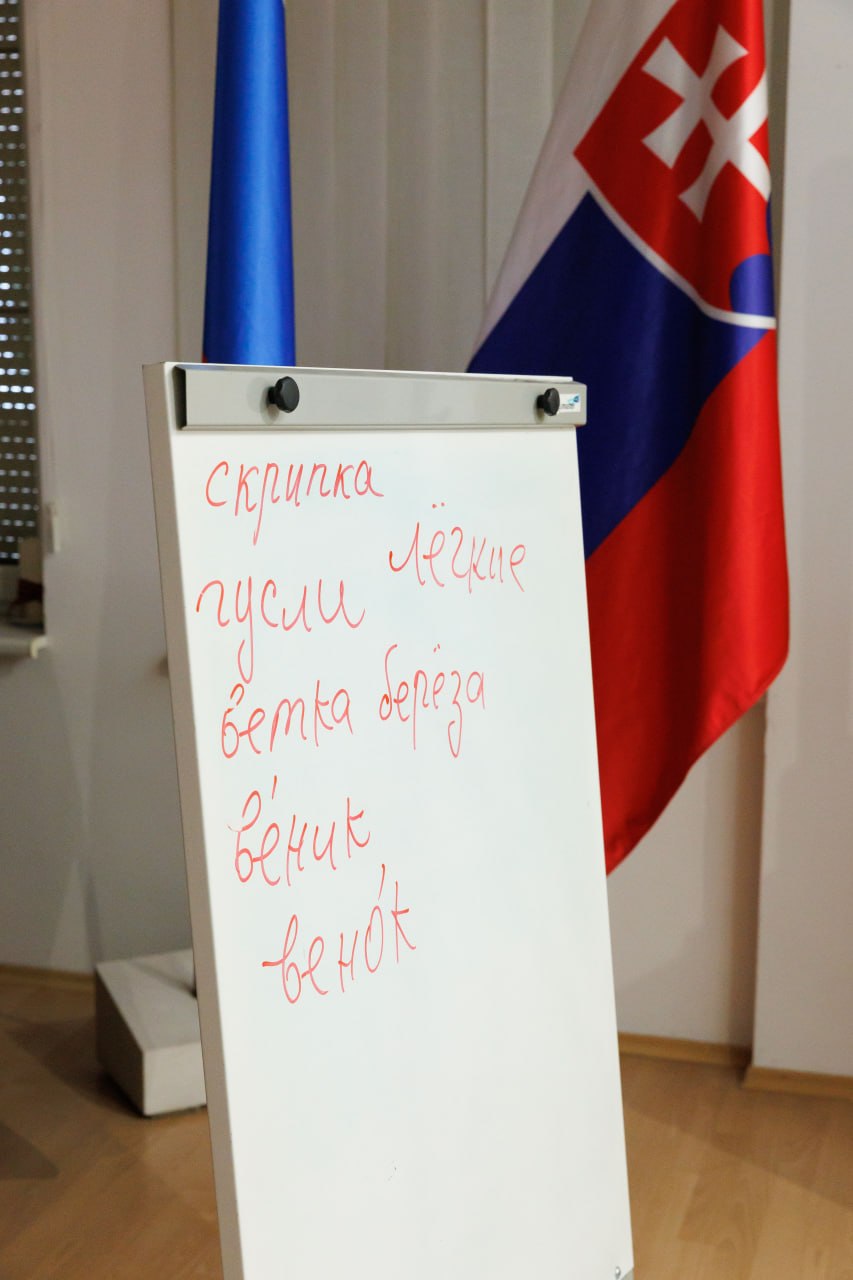 скрипка
лёгкие
гусли
ветка берёза
ве́ник
вено́к